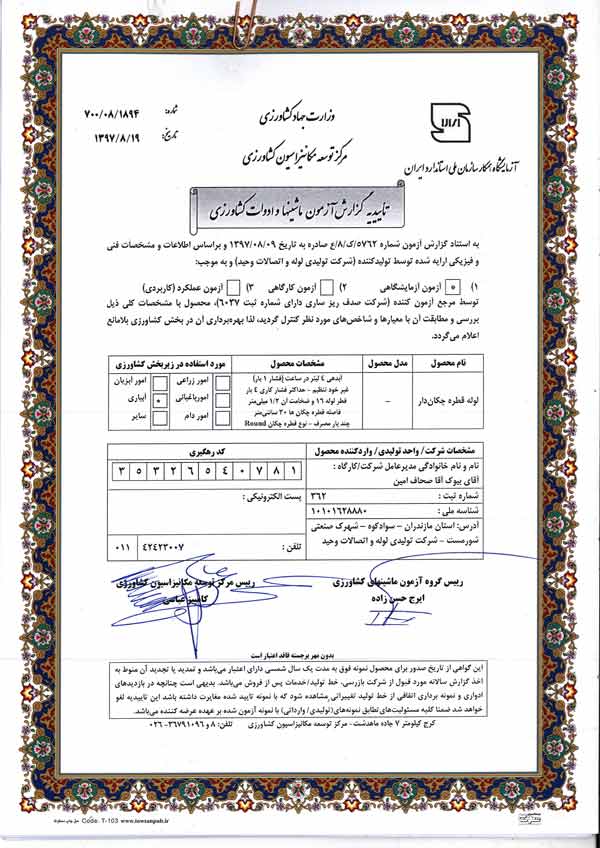 شماره: ۷۰۰/۰۸/۱۸۹۴
تاریخ: ۱۳۹۷/۸/۱۹
وزارت جهاد کشاورزی
مرکز توسعه مکانیزاسیون کشاورزی
آزمایشگاه همکار سازمان ملی استاندارد ایران
تاییدیه گزارش آزمون ماشینها و ادوات کشاورزی
به استناد گزارش آزمون شماره ۵۷۶۲/ک/۸/ع صادره به تاریخ ۱۳۹۷/۰۸/۰۹ و براساس اطلاعات و مشخصات فنی
و فیزیکی ارایه شده توسط تولیدکننده (شرکت تولیدی لوله و اتصالات وحید) و به موجب:
۱) * آزمون آزمایشگاهی ۲) آزمون کارگاهی ۳) آزمون عملکرد (کاربردی)
توسط مرجع آزمون کننده (شرکت صدف ریز ساری دارای شماره ثبت ۶۰۳۷)، محصول با مشخصات کلی ذیل
بررسی و مطابقت آن با معیارها و شاخص‌های مورد نظر کنترل گردید، لذا بهره‌برداری آن در بخش کشاورزی بلامانع
اعلام می‌گردد.
نام محصول مدل محصول مشخصات محصول مورد استفاده در زیربخش کشاورزی
لوله قطره چکان‌دار
–
آبدهی ۴ لیتر در ساعت (فشار ۱ بار)
غیر خود تنظیم - حداکثر فشار کاری ۴ بار
قطر لوله ۱۶ و ضخامت آن ۱/۲ میلی‌متر
فاصله قطره چکان ها ۲۰ سانتی‌متر
چند بار مصرف - نوع قطره چکان Round
امور زراعی امور آبزیان
امورباغبانی آبیاری *
امور دام سایر
مشخصات شرکت/ واحد تولیدی/ واردکننده محصول کد رهگیری
نام و نام خانوادگی مدیرعامل شرکت/کارگاه :
آقای بیوک آقا صحاف امین
۳ ۵ ۳ ۲ ۶ ۵ ۴ ۰ ۷ ۸ ۱
شماره ثبت : ۳۶۲
پست الکترونیکی :
شناسه ملی : ۱۰۱۰۱۶۲۸۸۸۰
آدرس: استان مازندران – سوادکوه – شهرک صنعتی
شورمست – شرکت تولیدی لوله و اتصالات وحید
تلفن : ۴۲۴۲۳۰۰۷ ۰۱۱
رییس گروه آزمون ماشینهای کشاورزی
ایرج حسن زاده
رییس مرکز توسعه مکانیزاسیون کشاورزی
کامبیز عباسی
بدون مهر برجسته فاقد اعتبار است
این گواهی از تاریخ صدور برای محصول نمونه فوق به مدت یک سال شمسی دارای اعتبار می‌باشد و تمدید یا تجدید آن منوط به
اخذ گزارش سالانه مورد قبول از شرکت بازرسی، خط تولید/خدمات پس از فروش می‌باشد. بدیهی است چنانچه در بازدیدهای
ادواری و نمونه برداری اتفاقی از خط تولید تغییراتی مشاهده شود که با نمونه تایید شده مغایرت داشته باشد این تاییدیه لغو
خواهد شد ضمنا کلیه مسئولیت‌های تطابق نمونه‌های (تولیدی/ وارداتی) با نمونه آزمون شده بر عهده عرضه کننده می‌باشد.
کرج کیلومتر ۷ جاده ماهدشت - مرکز توسعه مکانیزاسیون کشاورزی تلفن: ۸ و ۳۶۷۹۱۰۹۶-۰۲۶
Code. T-103 www.towsanpub.ir